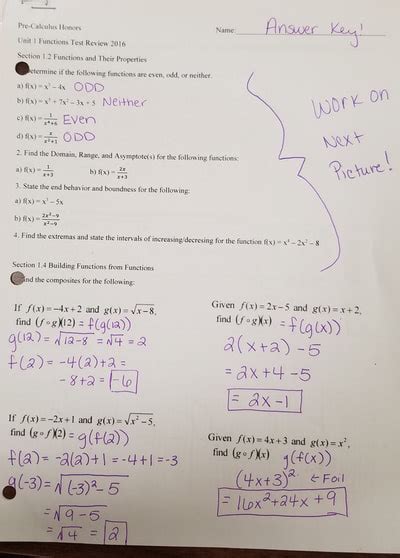 Pre-Calculus Honors
Name: Answer Key!
Unit 1 Functions Test Review 2016
Section 1.2 Functions and Their Properties
etermine if the following functions are even, odd, or neither.
a) f(x) = x³ – 4x ODD
b) f(x) = x³ + 7x² – 3x + 5 Neither
c) f(x) = 1/(x⁴+6) Even
d) f(x) = x/(x²+1) ODD
Work on
Next
Picture!
2. Find the Domain, Range, and Asymptote(s) for the following functions:
a) f(x) = 1/(x+3) b) f(x) = 2x/(x+3)
3. State the end behavior and boundness for the following:
a) f(x) = x³ – 5x
b) f(x) = (2x²–9)/(x²–9)
4. Find the extremas and state the intervals of increasing/decresing for the function f(x) = x⁴ – 2x² – 8
Section 1.4 Building Functions from Functions
ind the composites for the following:
If f(x) = –4x + 2 and g(x) = √x–8,
find (f∘g)(12) = f(g(12))
g(12) = √12-8 = √4 = 2
f(2) = -4(2)+2 =
-8+2 = -6
Given f(x) = 2x – 5 and g(x) = x + 2,
find (f∘g)(x) = f(g(x))
2(x+2) - 5
= 2x+4-5
= 2x-1
If f(x) = –2x + 1 and g(x) = √x²–5,
find (g∘f)(2) = g(f(2))
f(2) = -2(2)+1 = -4+1 = -3
g(-3) = √(-3)²-5
= √9-5
= √4 = 2
Given f(x) = 4x + 3 and g(x) = x²,
find (g∘f)(x) g(f(x))
(4x+3)² ← Foil
= 16x²+24x+9